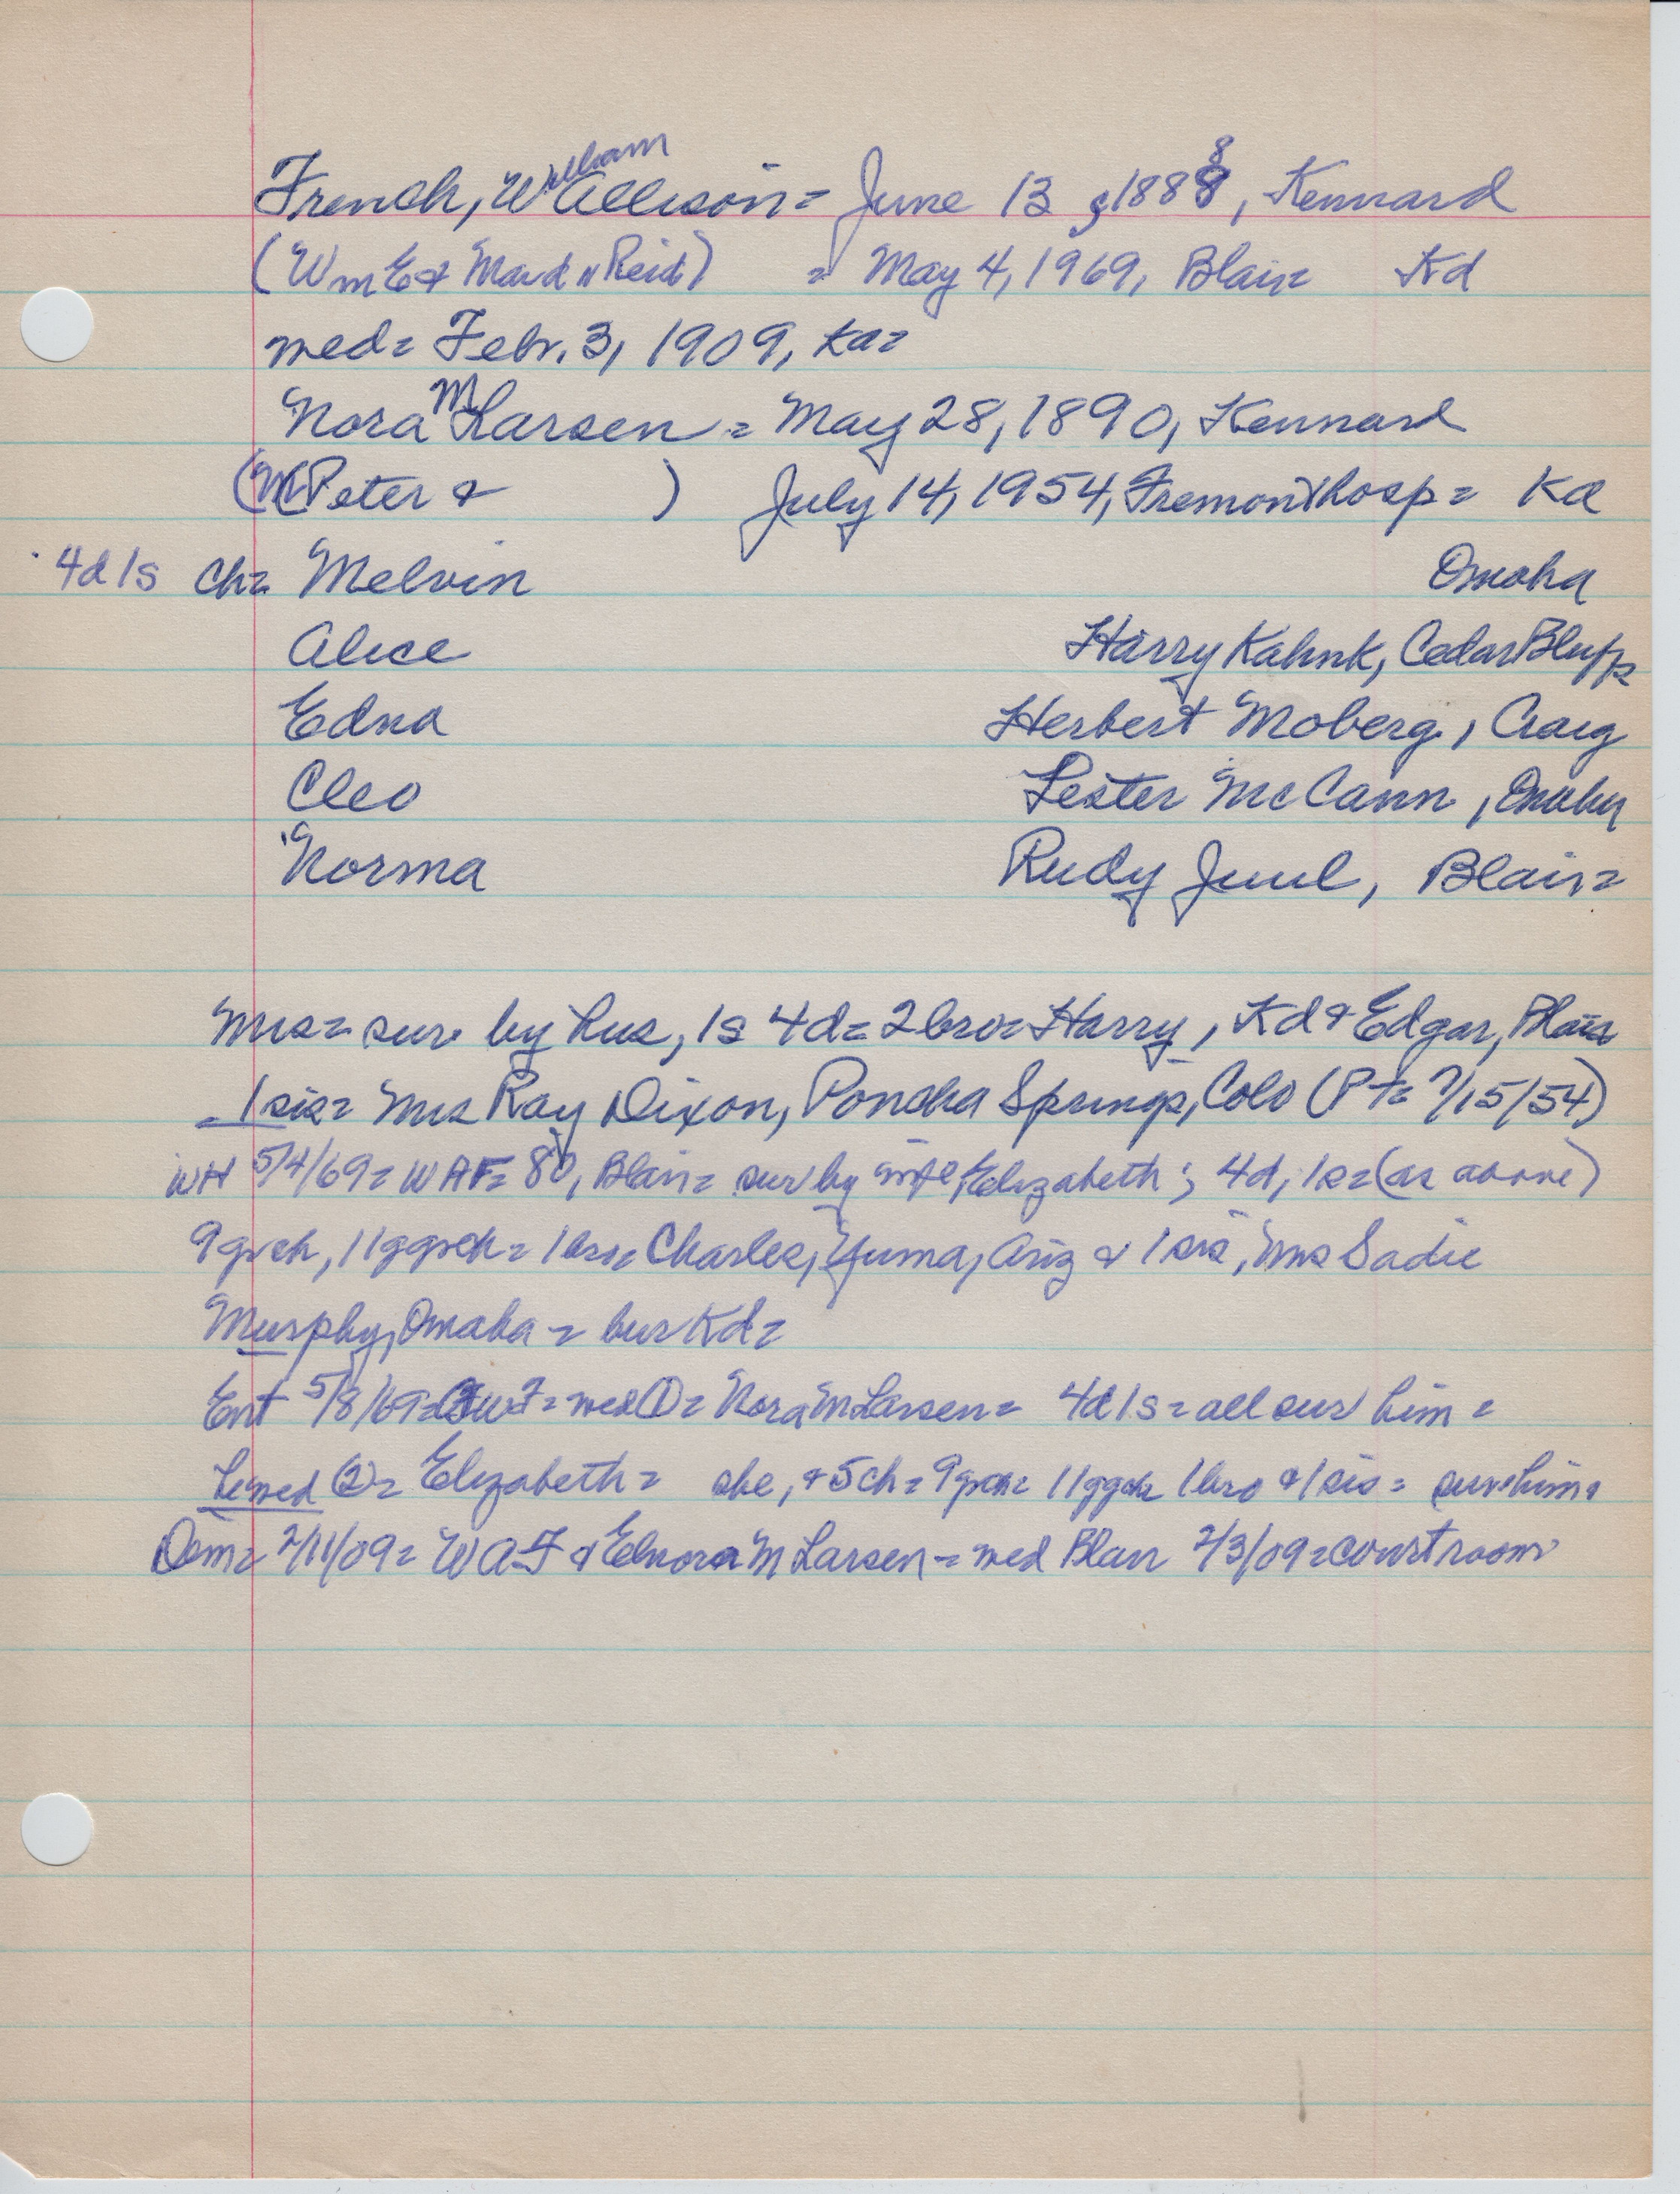 French, William Allison = June 13, 1888, Kennard
(Wm E & Maud Reid) = May 4, 1969, Blair Kd
med = Febr. 3, 1909, Ka =
Nora M Larsen = May 28, 1890, Kennard
(Peter & ) July 14, 1954, Fremont hosp = Kd
4d 1s Ch = Melvin Omaha
Alice Harry Kahnk, Cedar Bluffs
Edna Herbert Moberg, Craig
Cleo Lester McCann, Omaha
Norma Rudy Juul, Blair =
Mrs = sur by hus, 1s 4d = 2 bro = Harry, Kd & Edgar, Blair
1 sis = Mrs Ray Dixon, Poncha Springs, Colo (PT = 7/15/54)
WH 5/4/69 = WAF = 80, Blair = sur by wife, Elizabeth; 4d, 1s = (as above)
9 grch, 11 ggrch = 1 bro = Charles, Yuma, Ariz & 1 sis, Mrs Sadie
Murphy, Omaha = bur Kd =
Ent 5/8/69 = W F = med (1) = Nora M Larsen = 4d 1s = all sur him =
med (2) = Elizabeth = she, & 5 ch = 9 grch = 11 ggch 1 bro & 1 sis = surv him =
Dem = 2/11/09 = WAF & Elnora M Larsen = med Blair 2/3/09 = courtroom